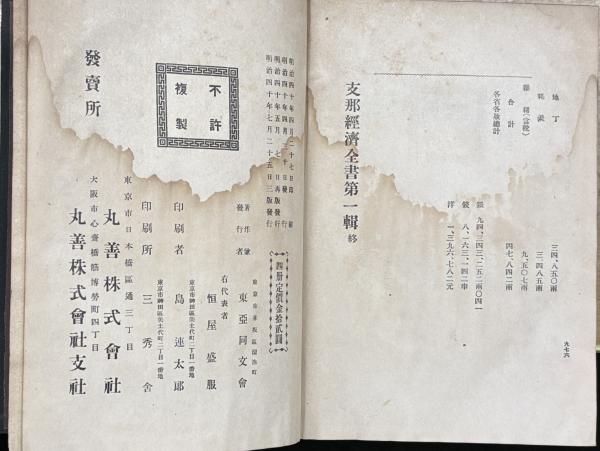 地丁　三四、八五〇兩
耗羨　三、四八五兩
雜稅(當稅)　九、五〇七兩
合計　四七、八四二兩
各省各款總計
銀　九四、三四三、二五二兩〇四一
錢　八、一六三、一四二串
洋　一、三九六、七八二元
支那經濟全書第一輯 終
九七六
明治四十年四月二十七日印刷
明治四十年四月三十日發行
明治四十年五月七日再版發行
明治四十年七月二十五日三版發行
四册定價金拾貳圓
不許
複製
著作兼
發行者
東亞同文會
右代表者
恒屋盛服
東京市神田區美土代町二丁目一番地
印刷者　島連太郎
東京市神田區美土代町二丁目一番地
印刷所　三秀舍
發賣所
東京市日本橋區通三丁目
丸善株式會社
大阪市心齋橋筋博勞町四丁目
丸善株式會社支社